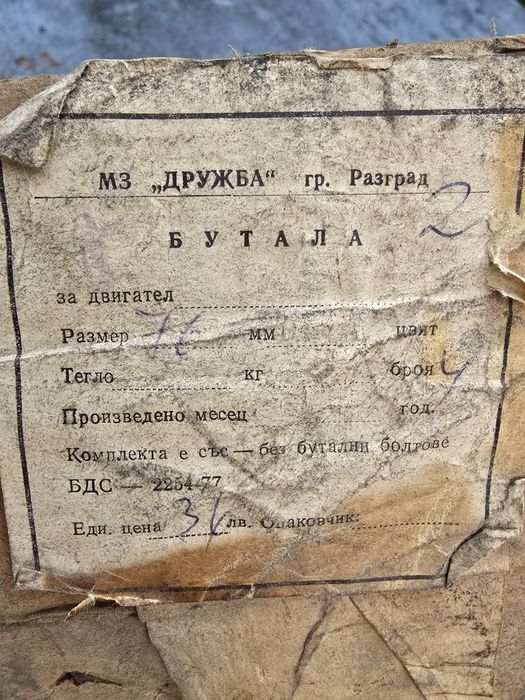 МЗ „ДРУЖБА“ гр. Разград
2
БУТАЛА
за двигател
Размер 76 мм цвят
Тегло кг броя 4
Произведено месец год.
Комплекта е със — без бутални болтове
БДС — 2254-77
Еди. цена лв. Опаковчик: